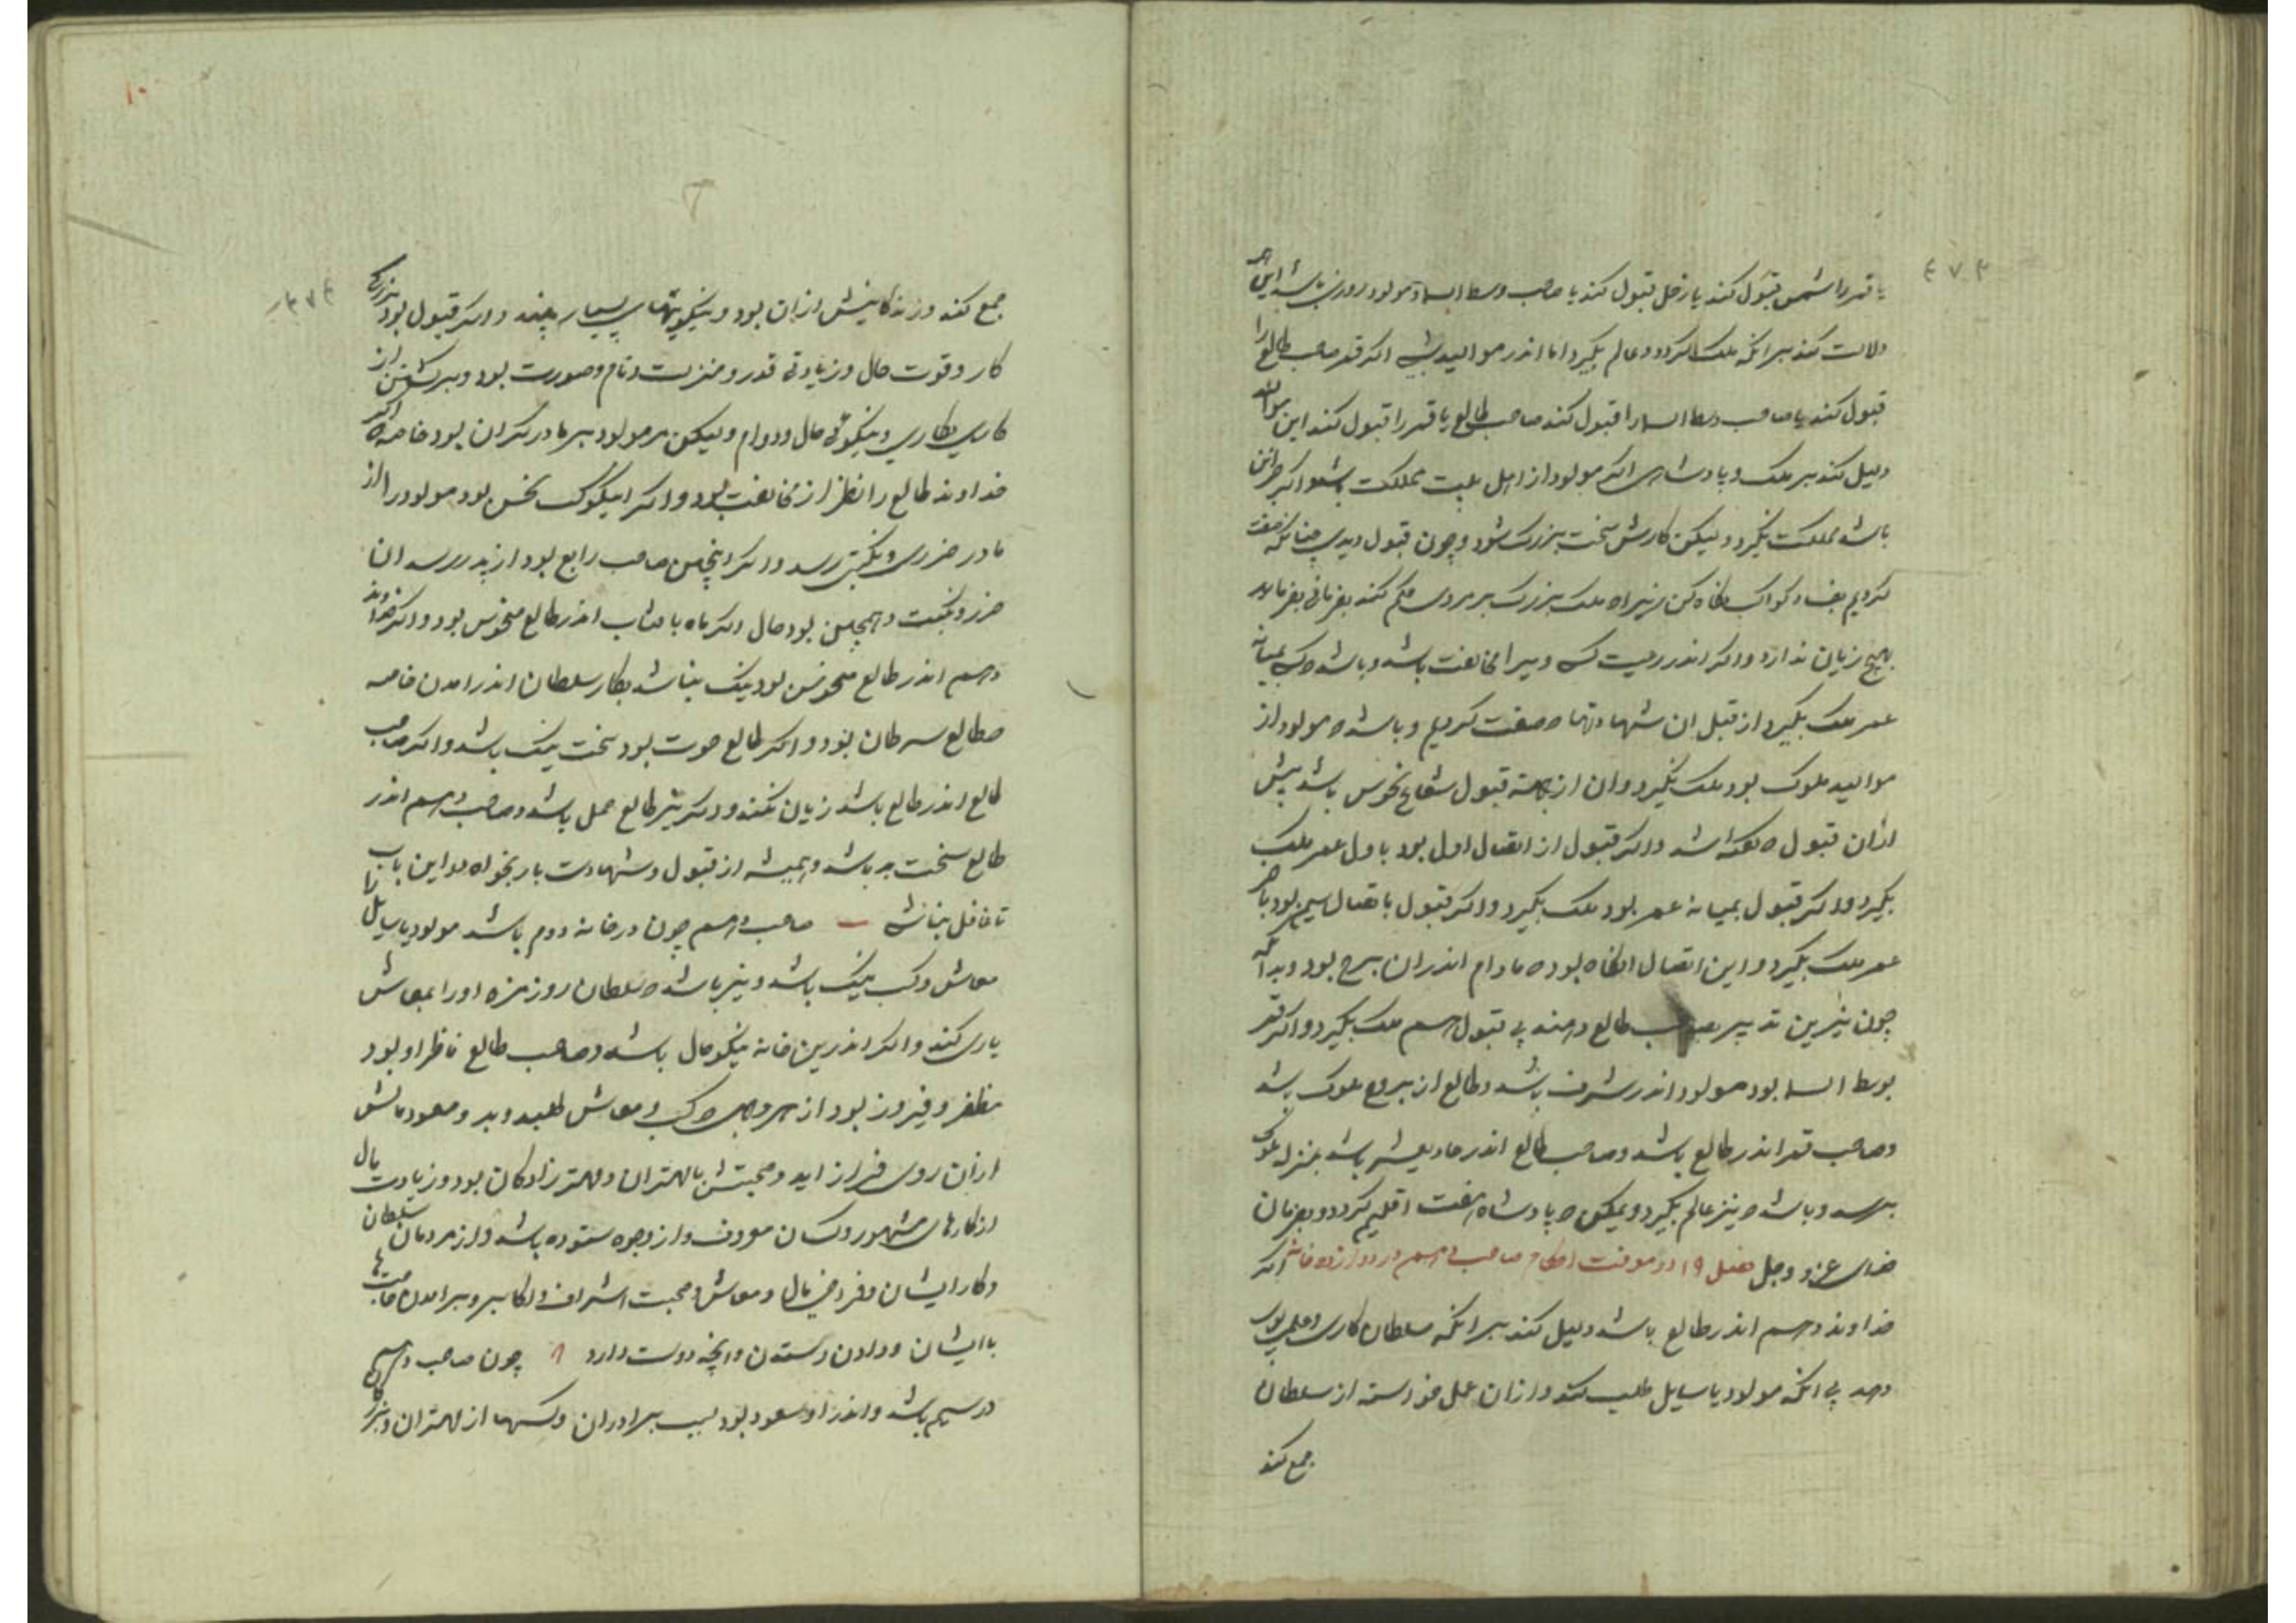 ٤٧٣
یا قمر را شمس قبول کند یا زحل قبول کند یا صاحب وسط السما و مولود روزی باشد این همه
دلالت کند برانکه ملک کردد و عالم بکیرد اما اندر موالید شبی اکر قمر صاحب طالع را
قبول کند یا صاحب وسط السما را قبول کند صاحب طالع یا قمر را قبول کند این
دلیل کند بر ملک و پادشاهی اکر مولود از اهل بیت مملکت باشد و اکر جز این
باشد مملکت نکیرد و لیکن کارش سخت بزرک شود و چون قبول دیدی چنانکه صفت
کردیم بفساد کواکب نکاه مکن زیراه ملک بزرک بر مردی حکم کند بفرمانی بفرماید
هیچ زیان ندارد و اکر اندر رعیت کسی ویرا مخالفت باشد و باشد ه بمیانه
عمر ملک بکیرد از قبل ان شهادتها ه صفت کردیم و باشد ه مولود از
موالید ملوک بود ملک نکیرد و ان از جهته قبول شعاع نحوس باشد پیش
ازان قبول ه باشد و اکر قبول از اتصال اول بود باول عمر ملک
بکیرد و اکر قبول بمیانه عمر بود ملک بکیرد و اکر قبول باتصال سیم بود باخر
عمر ملک بکیرد و این اتصال انکاه بود ه مادام اندران برج بود و بدانکه
چون نیرین تدبیر بصاحب طالع دهند بی قبول هم ملک بکیرد و اکر قمر
بوسط السما بود مولود اندر شرف باشد و طالع از بروج ملوک باشد
و صاحب قمر اندر طالع باشد و صاحب طالع اندر حادیعشر باشد بمنزله ملوک
برسد و باشد ه نیز عالم بکیرد و ممکن ه پادشاه هفت اقلیم کردد و بفرمان
خدای عز و جل فصل ١٩ در معرفت احکام صاحب دهم در دوازده خانه اکر
خداوند دهم اندر طالع باشد دلیل کند برانکه سلطان کاری و عملی بوی
دهد بی انکه مولود یا سایل طلب کند و ازان عمل خواسته از سلطان
جمع کند
١٠
٤٧٤
جمع کند و زندکانیش ازان بود و نیکویتهای بسیار بیند و اکر قبول بود بزرکی
کار و قوت حال و زیادتی قدر و منزلت و نام و صورت بود و برکشتن از
کاری بکاری و نیکوئی حال و دوام ولیکن مر مولود بر مادر کران بود خاصه ه اکر
خداوند طالع را نظر از مخالفت بود و اکر این کوکب نحس بود مولود را از
مادر ضرری و نکبتی رسد و اکر اینچنین صاحب رابع بود از پدر رسد ان
ضرر و نکبت و همچنین بود حال اکر ماه با ذنب اندر طالع منحوس بود و اکر خداوند
دهم اندر طالع منحوس بود نیک نباشد بکار سلطان اندر امدن خاصه
ه طالع سرطان بود و اکر طالع حوت بود سخت نیک باشد و اکر صاحب
طالع اندر طالع باشد زیان نکند و دیکر نیز طالع حمل باشد و صاحب دهم اندر
طالع سخت بد باشد و همیشه از قبول و شهادت یار بخواه در این باب
تا غافل نباشی صاحب دهم چون در خانه دوم باشد مولود یا سایل را
معاش و کسب نیک باشد و نیز باشد ه سلطان روز مزه او را بمعاش
یاری کند و اکر اندرین خانه نیکو حال باشد و صاحب طالع ناظر او بود
مظفر و فیروز بود از هر وجهی ه کسب و معاش طلبد و بر و مسعود مالش
ازان روی فراز اید و صحبتش با مهتران و مهتر زادکان بود و زیادت مال
از کارهای مشهور و کسان معروف و از وجوه ستوده باشد و از مردمان سلطان
و کار ایشان و فراخی مال و معاش و صحبت اشراف و اکابر و برامدن حاجت ها
با ایشان و دادن و ستدن و انچه دوست دارد چون صاحب دهم
در سیم باشد و اندر او مسعود بود بسبب برادران و کسها از مهتران و